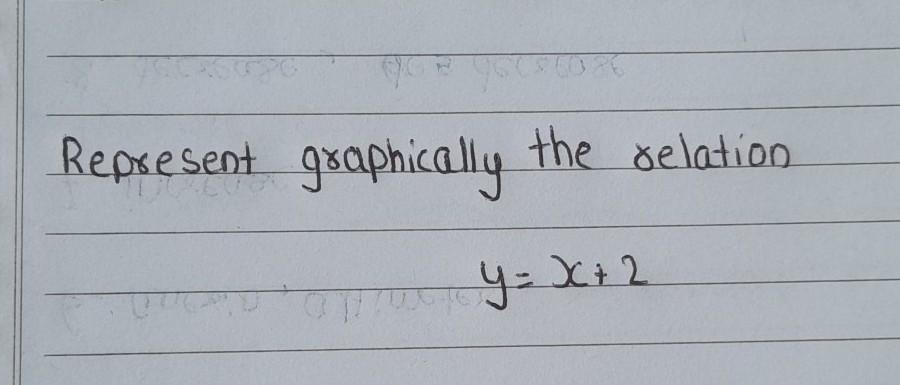 Represent graphically the relation
y = x + 2